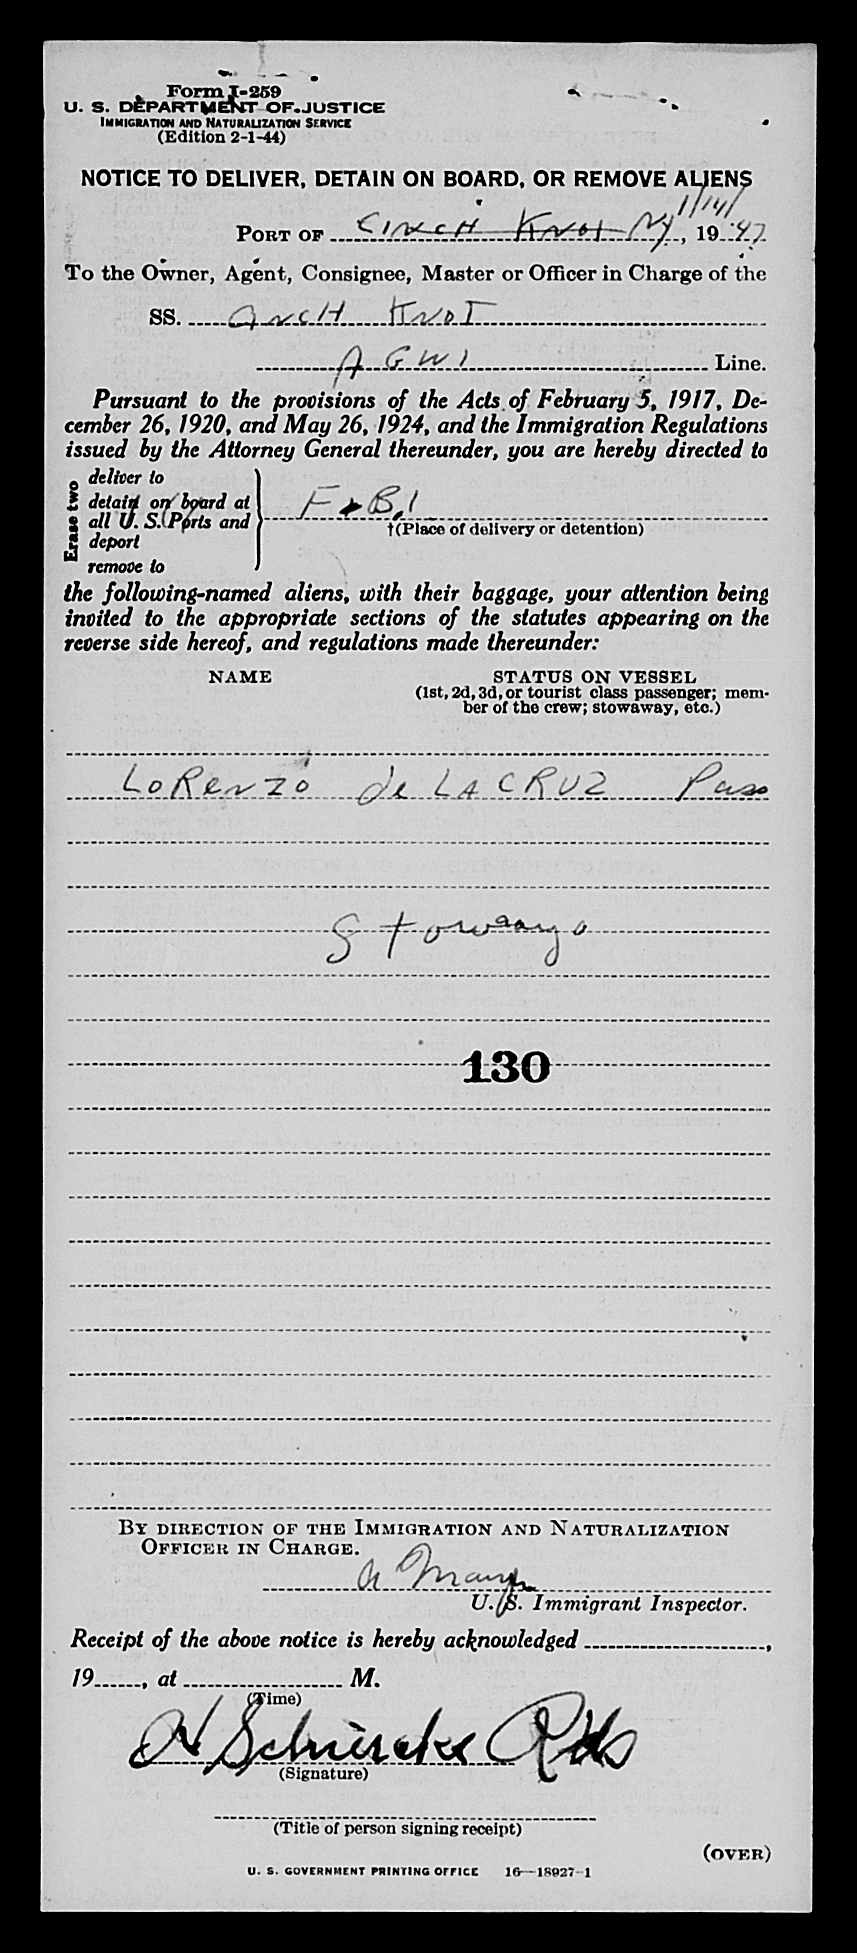 Form I-259
U. S. DEPARTMENT OF JUSTICE
IMMIGRATION AND NATURALIZATION SERVICE
(Edition 2-1-44)
NOTICE TO DELIVER, DETAIN ON BOARD, OR REMOVE ALIENS
1/14/
PORT OF CINCH KNOT NY, 19 47
To the Owner, Agent, Consignee, Master or Officer in Charge of the
SS. CINCH KNOT
AGWI Line.
Pursuant to the provisions of the Acts of February 5, 1917, De-
cember 26, 1920, and May 26, 1924, and the Immigration Regulations
issued by the Attorney General thereunder, you are hereby directed to
Erase two
deliver to
detain on board at
all U. S. Ports and
deport
remove to
†(Place of delivery or detention)
the following-named aliens, with their baggage, your attention being
invited to the appropriate sections of the statutes appearing on the
reverse side hereof, and regulations made thereunder:
NAME STATUS ON VESSEL
(1st, 2d, 3d, or tourist class passenger; mem-
ber of the crew; stowaway, etc.)
LORenzo de LA CRUZ Pass
Stowaway
130
BY DIRECTION OF THE IMMIGRATION AND NATURALIZATION
OFFICER IN CHARGE.
U. S. Immigrant Inspector.
Receipt of the above notice is hereby acknowledged ,
19 , at M.
(Time)
(Signature)
(Title of person signing receipt)
(OVER)
U. S. GOVERNMENT PRINTING OFFICE 16—18927-1